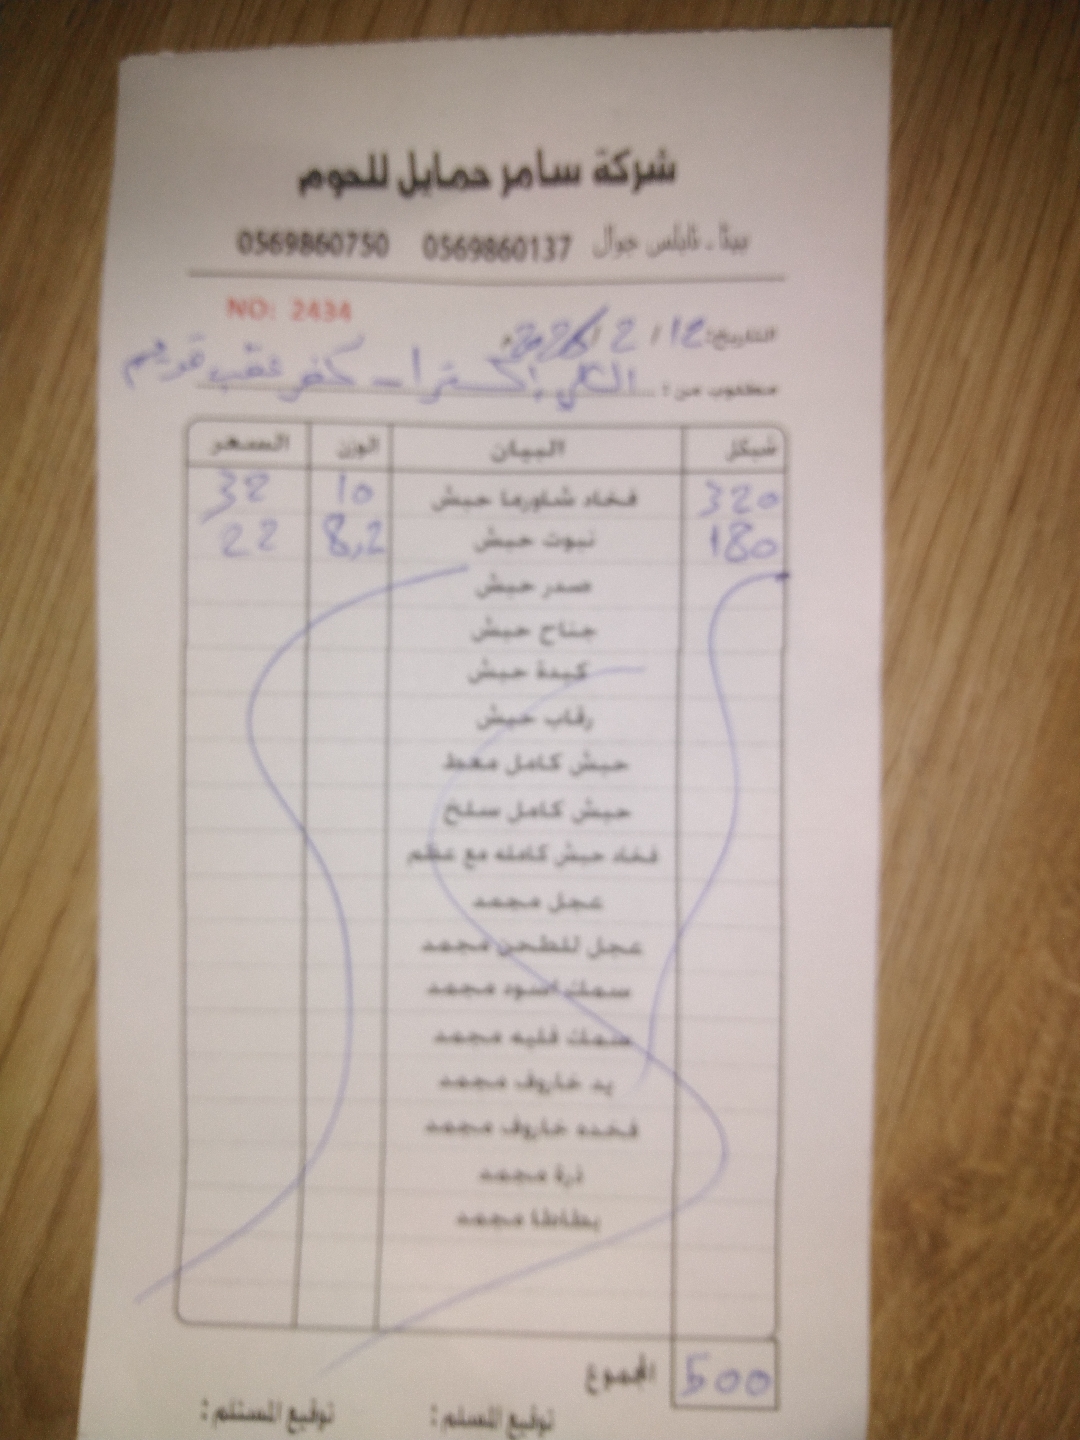 شركة سامر حمايل للحوم
بيتا - نابلس جوال 0569860137 0569860750
NO: 2434
التاريخ: 12 / 2 / 2026
مطلوب من: إكسترا - كفر عقب
شيكل البيان الوزن السعر
320 فخاد شاورما حبش 10 32
180 نبوت حبش 8,2 22
صدر حبش
جناح حبش
كبدة حبش
رقاب حبش
حبش كامل ممعط
حبش كامل سلخ
فخاد حبش كامله مع عظم
عجل مجمد
عجل للطحن مجمد
سمك اسود مجمد
سمك فليه مجمد
يد خاروف مجمد
فخده خاروف مجمد
ذرة مجمد
بطاطا مجمد
المجموع 500
توقيع المسلم : توقيع المستلم :